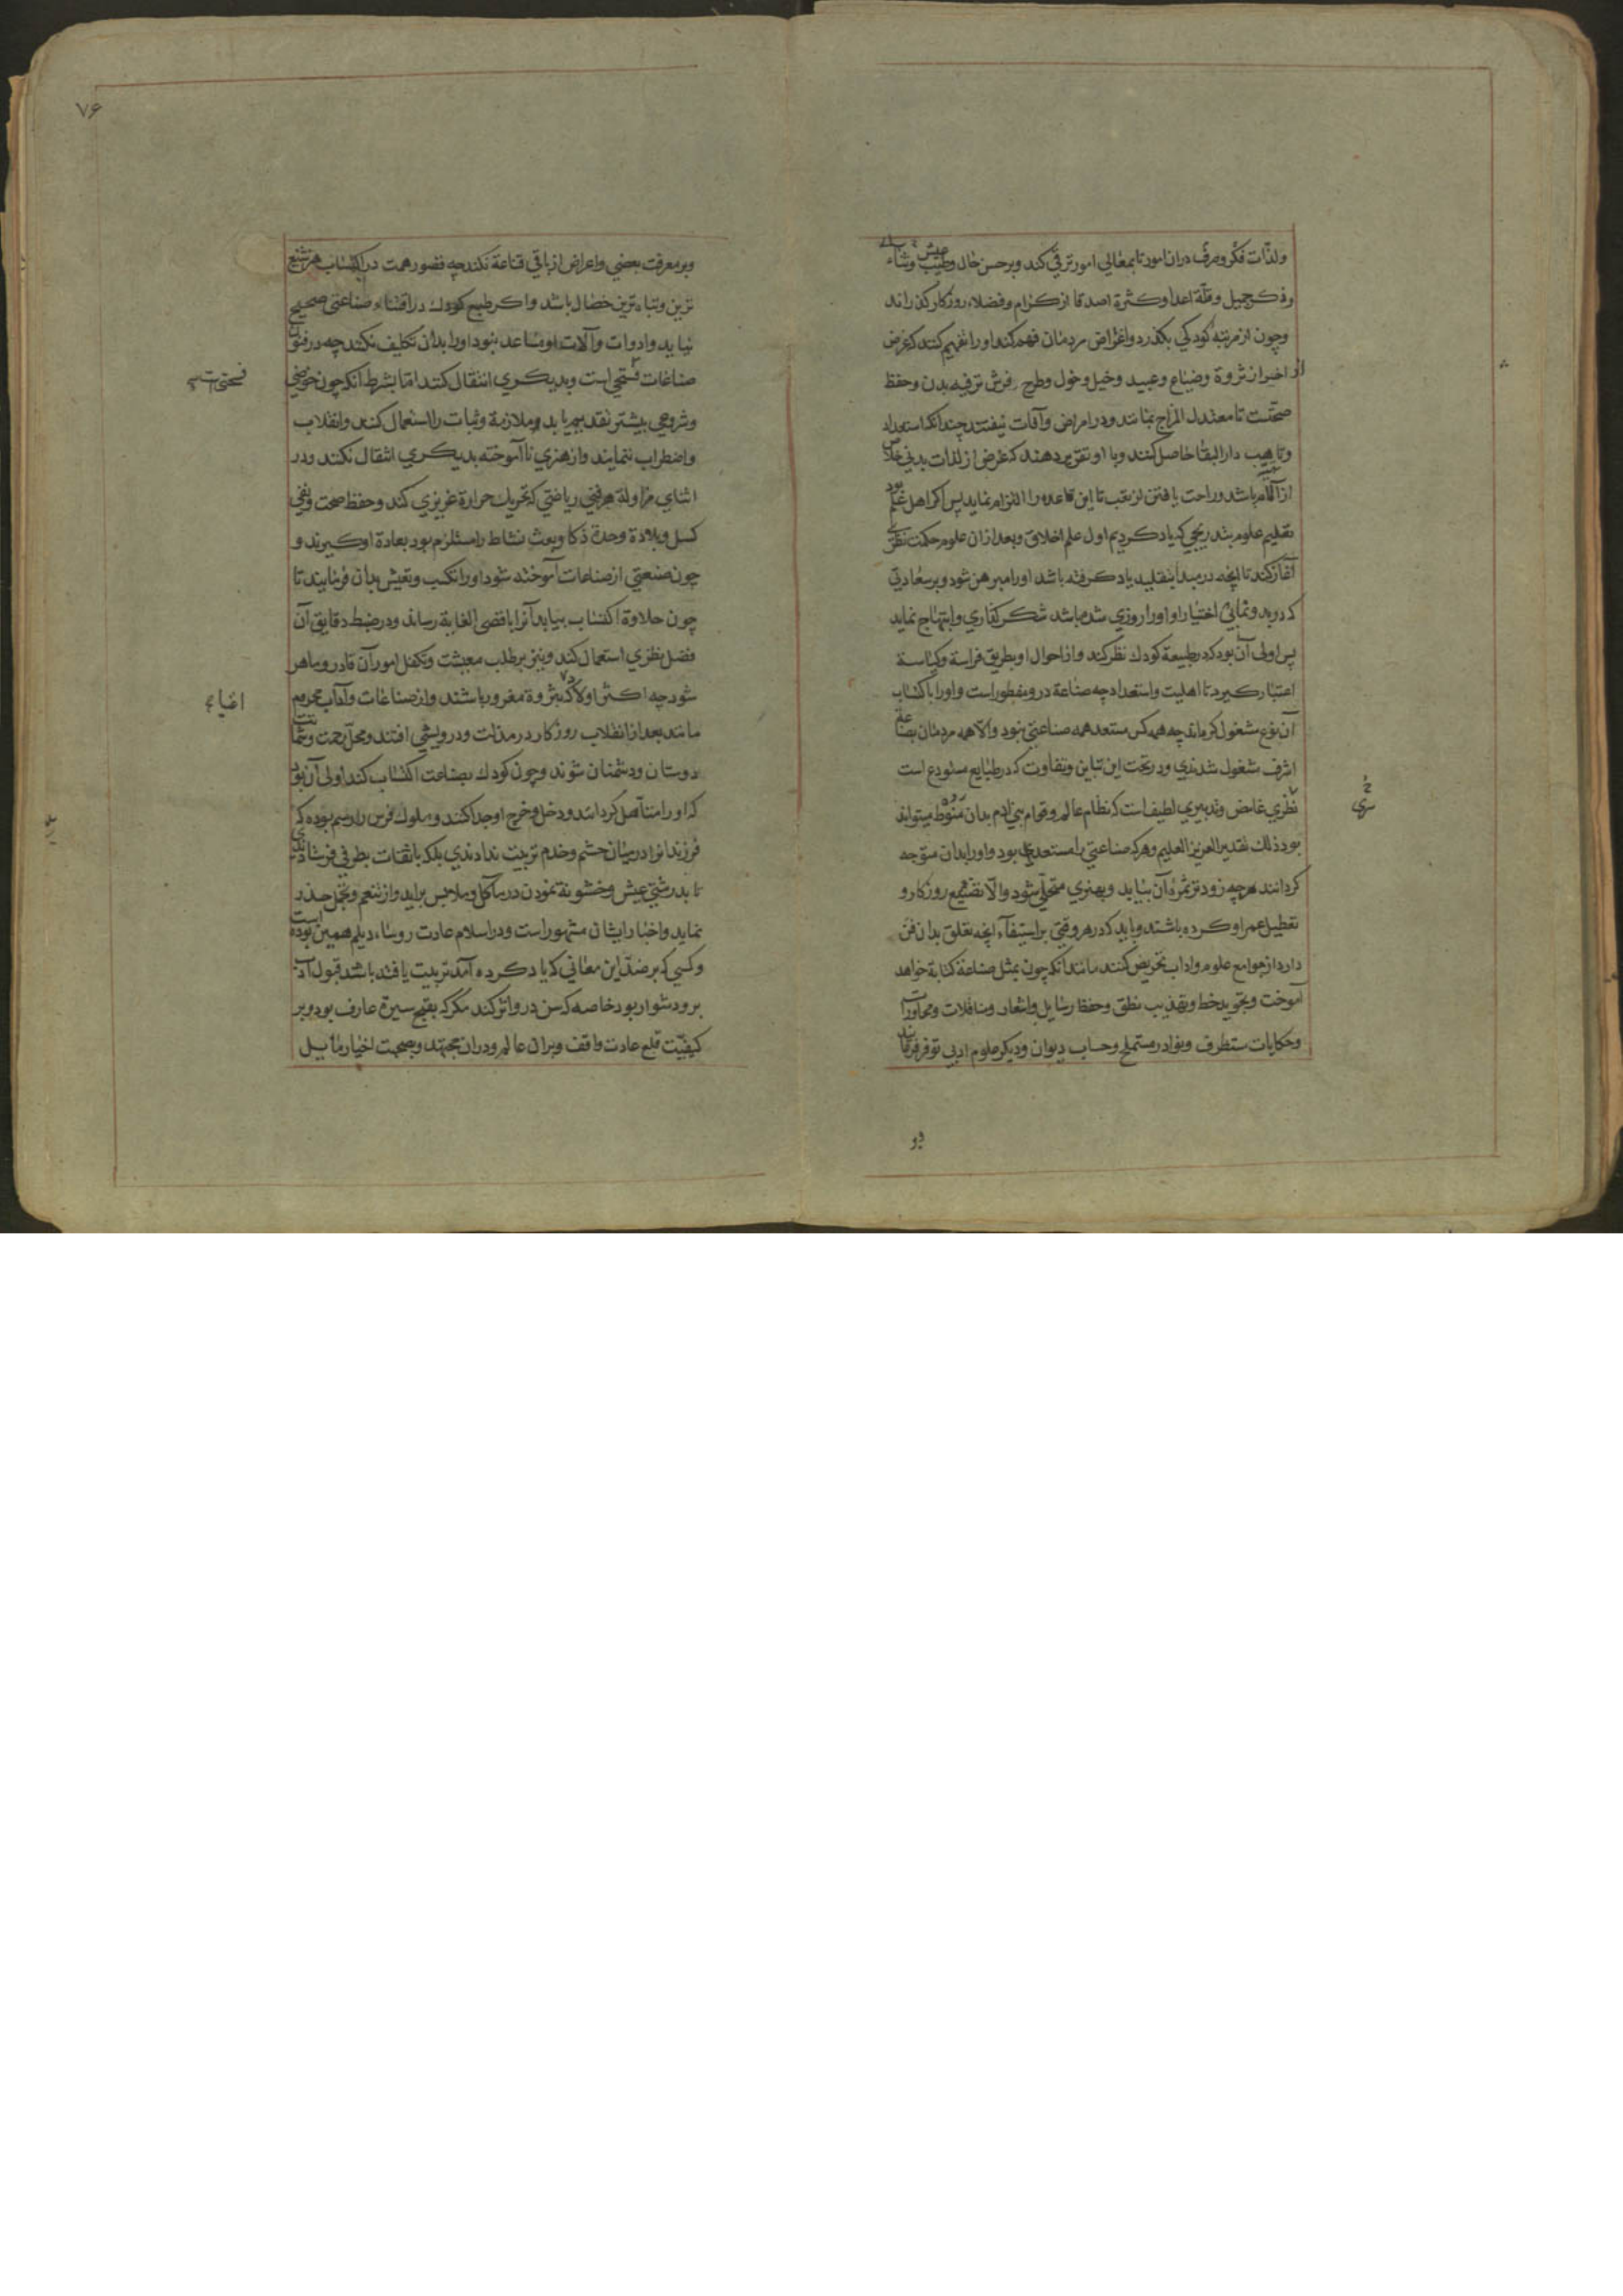 ولذّات فکر وصرف دران امور تا بمعالی امور ترقی کند وبر حسن حال وطیب عیش وثناء
وذکر جمیل وقلّة اعدا وکثرة اصدقا از کرام وفضلاء روزکار کذراند
وچون از مرتبهٔ کودکی بکذرد واغراض مردمان فهم کند اورا تفهیم کنند که غرض
از اخیر از ثروة وضیاع وعبید وخیل وخول وطرح فرش ترفیه بدن وحفظ
صحّتست تا معتدل المزاج بمانند ودر امراض وآفات نیفتند چندانکه استعداد
وتاهب دار البقا حاصل کنند وبا او تقریر دهند که غرض از لذات بدنی خلاص
از آلام باشد وراحت یافتن از تعب تا این قاعده را التزام نماید پس اکر اهل علم بود
تعلیم علوم بتدریجی که یاد کردیم اول علم اخلاق وبعد ازان علوم حکمت نظری
آغاز کند تا آنچه در مبدأ بتقلید یاد کرفته باشد اورا مبرهن شود وبر سعادتی
که در بدو نما بی اختیار او اورا روزی شده باشد شکر کذاری وابتهاج نماید
پس اولی آن بود که در طبیعة کودك نظر کند واز احوال او بطریق فراسة وکیاسة
اعتبار کیرد تا اهلیت واستعداد چه صناعة در و مفطور است و اورا باکتساب
آن نوع مشغول کرداند چه همه کس مستعد همه صناعتی نبود والا همه مردمان بصناعة
اشرف مشغول شدندی ودر تحت این تباین وتفاوت که در طبایع مستودع است
سرّی
نظری غامض وتدبیری لطیف است که نظام عالم وقوام بنی آدم بدان منوط میتواند
بود ذلك تقدیر العزیز العلیم وهر که صناعتی را مستعد بود واورا بدان متوجه
کردانند هرچه زودتر ثمرهٔ آن بیابد وبهنری متحلّی شود والّا تضییع روزکار و
تعطیل عمر او کرده باشند وباید که در هر وقتی بر استیفآء آنچه تعلق بدان فنّ
دارد از جوامع علوم واداب تحریض کنند مانند آنکه چون بمثل صناعة کتابة خواهد
آموخت وبتجوید خط وتهذیب نطق وحفظ رسایل واشعار ومناقلات ومحاورات
وحکایات مستظرف ونوادر مستملح وحساب دیوان ودیکر علوم ادبی توفر فرماند
وبر
۷۶
وبر معرفت بعضی واعراض از باقی قناعة نکند چه قصور همت در اکتساب هنر شنیع
ترین وتباه ترین خصال باشد واکر طبع کودك در اقتناء صناعتی صحیح
نیابد وادوات وآلات او مساعد نبود اورا بدان تکلیف نکنند چه در فنون
صناعات فسحتی است وبدیکری انتقال کنند اما بشرط آنکه چون خوضی
فسحتی است
وشروعی بیشتر تقدیم یابد ملازمة وثبات را استعمال کنند وانقلاب
واضطراب ننمایند واز هنری ناآموخته بدیکری انتقال نکنند ودر
اثنای مزاولة هر فنی ریاضتی که تحریك حرارة غریزی کند وحفظ صحت ونفی
کسل وبلادة وحدة ذکا وبعث نشاط را مستلزم بود بعادة او کیرند و
چون صنعتی از صناعات آموخته شود اورا بکسب وتعیش بدان فرمایند تا
چون حلاوة اکتساب بیابد آنرا باقصی الغایة رساند ودر ضبط دقایق آن
فضل نظری استعمال کند ونیز بر طلب معیشت وتکفل امور آن قادر وماهر
شود چه اکثر اولاد که بثروة مغرور باشند واز صناعات وآداب محروم
اغنیا
مانند بعد از انقلاب روزکار در مذلت ودرویشی افتند ومحل رحمت وشماتت
دوستان ودشمنان شوند وچون کودك بصناعت اکتساب کند اولی آن بود
که اورا متأهل کردانند ودخل وخرج او جدا کنند وملوك فرس را رسم بوده که
فرزندانرا در میان حشم وخدم تربیت ندادندی بلکه با ثقات بطرفی فرستادندی
تا بدرشتی عیش وخشونة نمودن در مآکل وملابس براید واز تنعم وتجمل حذر
نماید واخبار ایشان مشهور است ودر اسلام عادت روساء دیلم همین بوده است
وکسی که بر ضدّ این معانی که یاد کرده آمد تربیت یافته باشد قبول ادب
برو دشوار بود خاصه که سن درو اثر کند مکر که بقبح سیرة عارف بود وبر
کیفیّت قلع عادت واقف وبران عالم ودران مجتهد وبصحبت اخیار مایل